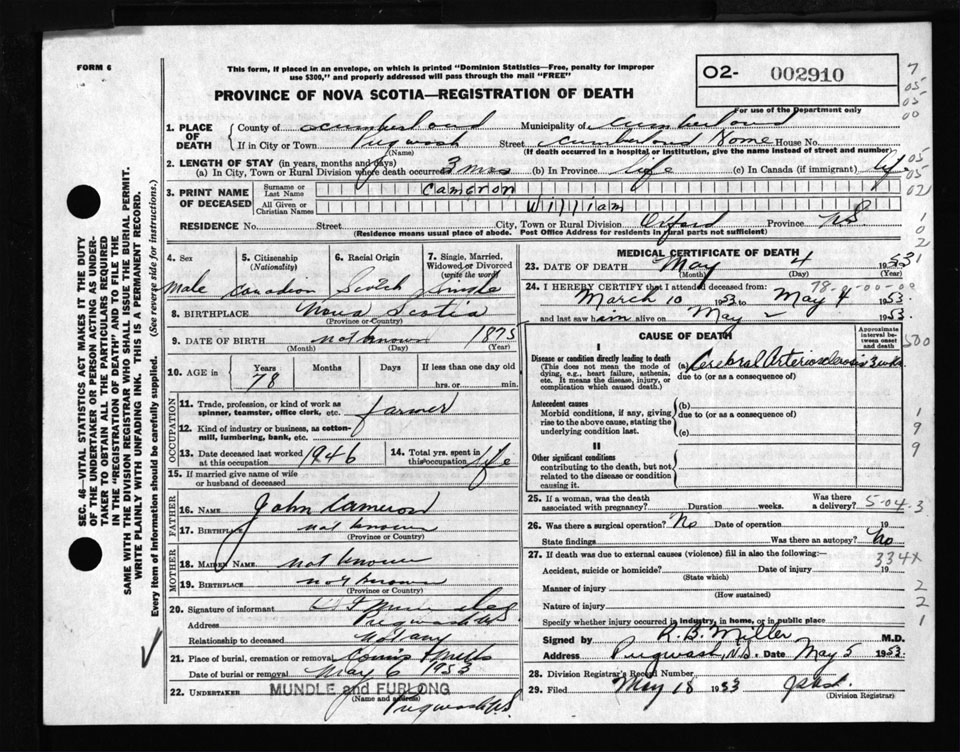 FORM 6
This form, if placed in an envelope, on which is printed "Dominion Statistics—Free, penalty for improper
use $300," and properly addressed will pass through the mail "FREE"
O2- 002910
For use of the Department only
PROVINCE OF NOVA SCOTIA—REGISTRATION OF DEATH
1. PLACE OF DEATH
County of Cumberland Municipality of Cumberland
If in City or Town Pugwash Street Home House No.
(Name) (If death occurred in a hospital or institution, give the name instead of street and number)
2. LENGTH OF STAY (in years, months and days)
(a) In City, Town or Rural Division where death occurred 3 mos (b) In Province life (c) In Canada (if immigrant)
3. PRINT NAME OF DECEASED
Surname or Last Name Cameron
All Given or Christian Names William
RESIDENCE No. Street City, Town or Rural Division Oxford Province N.S.
(Residence means usual place of abode. Post Office Address for residents in rural parts not sufficient)
4. Sex Male
5. Citizenship (Nationality) Canadian
6. Racial Origin Scotch
7. Single, Married, Widowed or Divorced (write the word) Single
8. BIRTHPLACE Nova Scotia
(Province or Country)
9. DATE OF BIRTH not known 1875
(Month) (Day) (Year)
10. AGE in Years 78 Months Days If less than one day old
hrs. or min.
OCCUPATION
11. Trade, profession, or kind of work as
spinner, teamster, office clerk, etc. farmer
12. Kind of industry or business, as cotton-
mill, lumbering, bank, etc.
13. Date deceased last worked at this occupation 1946
14. Total yrs. spent in this occupation life
15. If married give name of wife
or husband of deceased
FATHER
16. NAME John Cameron
17. BIRTHPLACE not known
(Province or Country)
MOTHER
18. MAIDEN NAME not known
19. BIRTHPLACE not known
(Province or Country)
20. Signature of informant
Address Pugwash N.S.
Relationship to deceased Not any
21. Place of burial, cremation or removal
Date of burial or removal May 6 1953
22. UNDERTAKER MUNDLE and FURLONG
(Name and address) Pugwash N.S.
MEDICAL CERTIFICATE OF DEATH
23. DATE OF DEATH May 4 1953
(Month) (Day) (Year)
24. I HEREBY CERTIFY that I attended deceased from:
March 10 1953 to May 4 1953.
and last saw him alive on May 2 1953.
CAUSE OF DEATH
Approximate interval between onset and death
I
Disease or condition directly leading to death
(This does not mean the mode of
dying, e.g., heart failure, asthenia,
etc. It means the disease, injury, or
complication which caused death.)
(a) Cerebral Arteriosclerosis 3 wks.
due to (or as a consequence of)
Antecedent causes
Morbid conditions, if any, giving
rise to the above cause, stating the
underlying condition last.
(b)
due to (or as a consequence of)
(c)
II
Other significant conditions
contributing to the death, but not
related to the disease or condition
causing it.
25. If a woman, was the death
associated with pregnancy? Duration weeks. Was there a delivery?
5-04-3
26. Was there surgical operation? No Date of operation 19
State findings Was there an autopsy? No
27. If death was due to external causes (violence) fill in also the following:—
334x
Accident, suicide or homicide? Date of injury 19
(State which)
Manner of injury
(How sustained)
Nature of injury
Specify whether injury occurred in industry, in home, or in public place
Signed by R. B. Miller M.D.
Address Pugwash, N.S. Date May 5 1953.
28. Division Registrar's Record Number
29. Filed May 18 1953
(Division Registrar)
SEC. 46—VITAL STATISTICS ACT MAKES IT THE DUTY
OF THE UNDERTAKER OR PERSON ACTING AS UNDER-
TAKER TO OBTAIN ALL THE PARTICULARS REQUIRED
IN THE "REGISTRATION OF DEATH" AND TO FILE THE
SAME WITH THE DIVISION REGISTRAR WHO SHALL ISSUE THE BURIAL PERMIT.
WRITE PLAINLY WITH UNFADING INK. THIS IS A PERMANENT RECORD.
Every item of information should be carefully supplied. (See reverse side for instructions.)